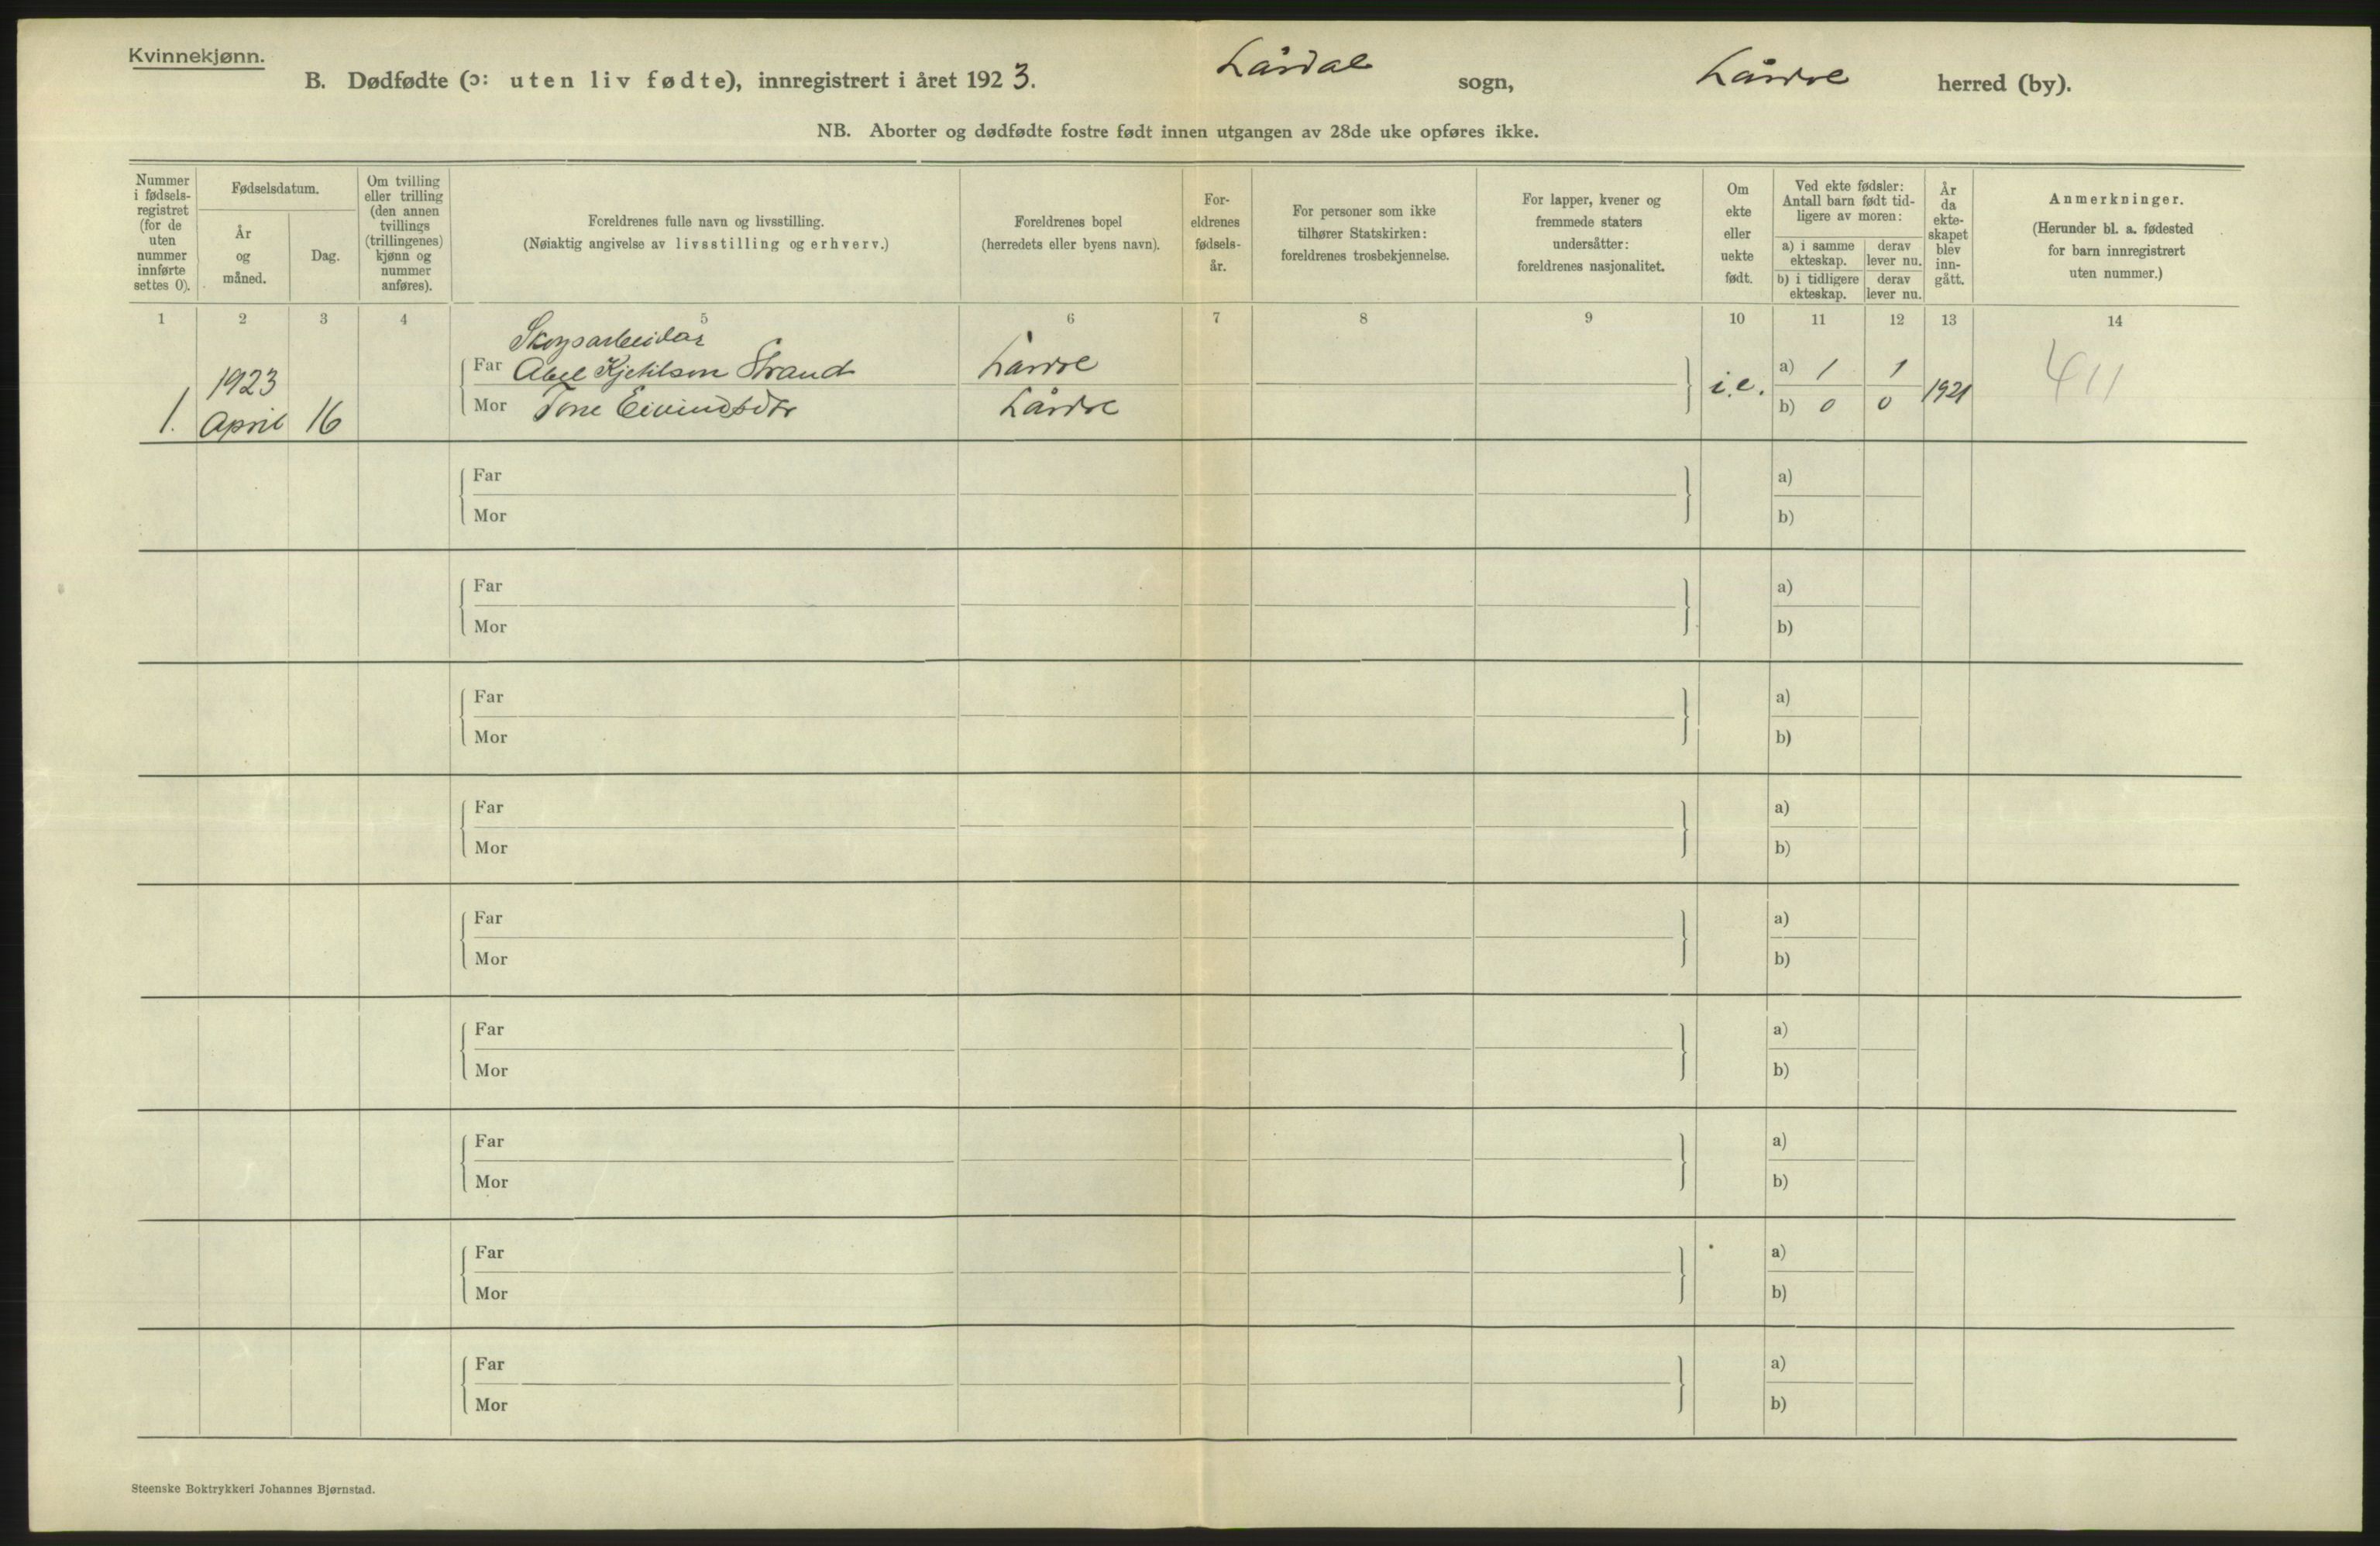 Kvinnekjønn.
B. Dødfødte (ɔ: uten liv fødte), innregistrert i året 1923. Lårdal sogn, Lårdal herred (by).
NB. Aborter og dødfødte fostre født innen utgangen av 28de uke opføres ikke.
Nummer i fødsels-registret (for de uten nummer innførte settes 0).
Fødselsdatum.
År og måned.
Dag.
Om tvilling eller trilling (den annen tvillings (trillingenes) kjønn og nummer anføres).
Foreldrenes fulle navn og livsstilling.
(Nøiaktig angivelse av livsstilling og erhverv.)
Foreldrenes bopel
(herredets eller byens navn).
For-eldrenes fødsels-år.
For personer som ikke tilhører Statskirken: foreldrenes trosbekjennelse.
For lapper, kvener og fremmede staters undersåtter: foreldrenes nasjonalitet.
Om ekte eller uekte født.
Ved ekte fødsler: Antall barn født tid-ligere av moren:
a) i samme ekteskap.
derav lever nu.
b) i tidligere ekteskap.
derav lever nu.
År da ekte-skapet blev inn-gått.
Anmerkninger.
(Herunder bl. a. fødested for barn innregistrert uten nummer.)
1 2 3 4 5 6 7 8 9 10 11 12 13 14
Skogsarbeidar
Far Abel Kjetilson Strand Lårdal a) 1 1
1. 1923 April 16 i.e. 1921 411
Mor Tone Eivindsdtr Lårdal b) 0 0
Far a)
Mor b)
Far a)
Mor b)
Far a)
Mor b)
Far a)
Mor b)
Far a)
Mor b)
Far a)
Mor b)
Far a)
Mor b)
Far a)
Mor b)
Far a)
Mor b)
Steenske Boktrykkeri Johannes Bjørnstad.